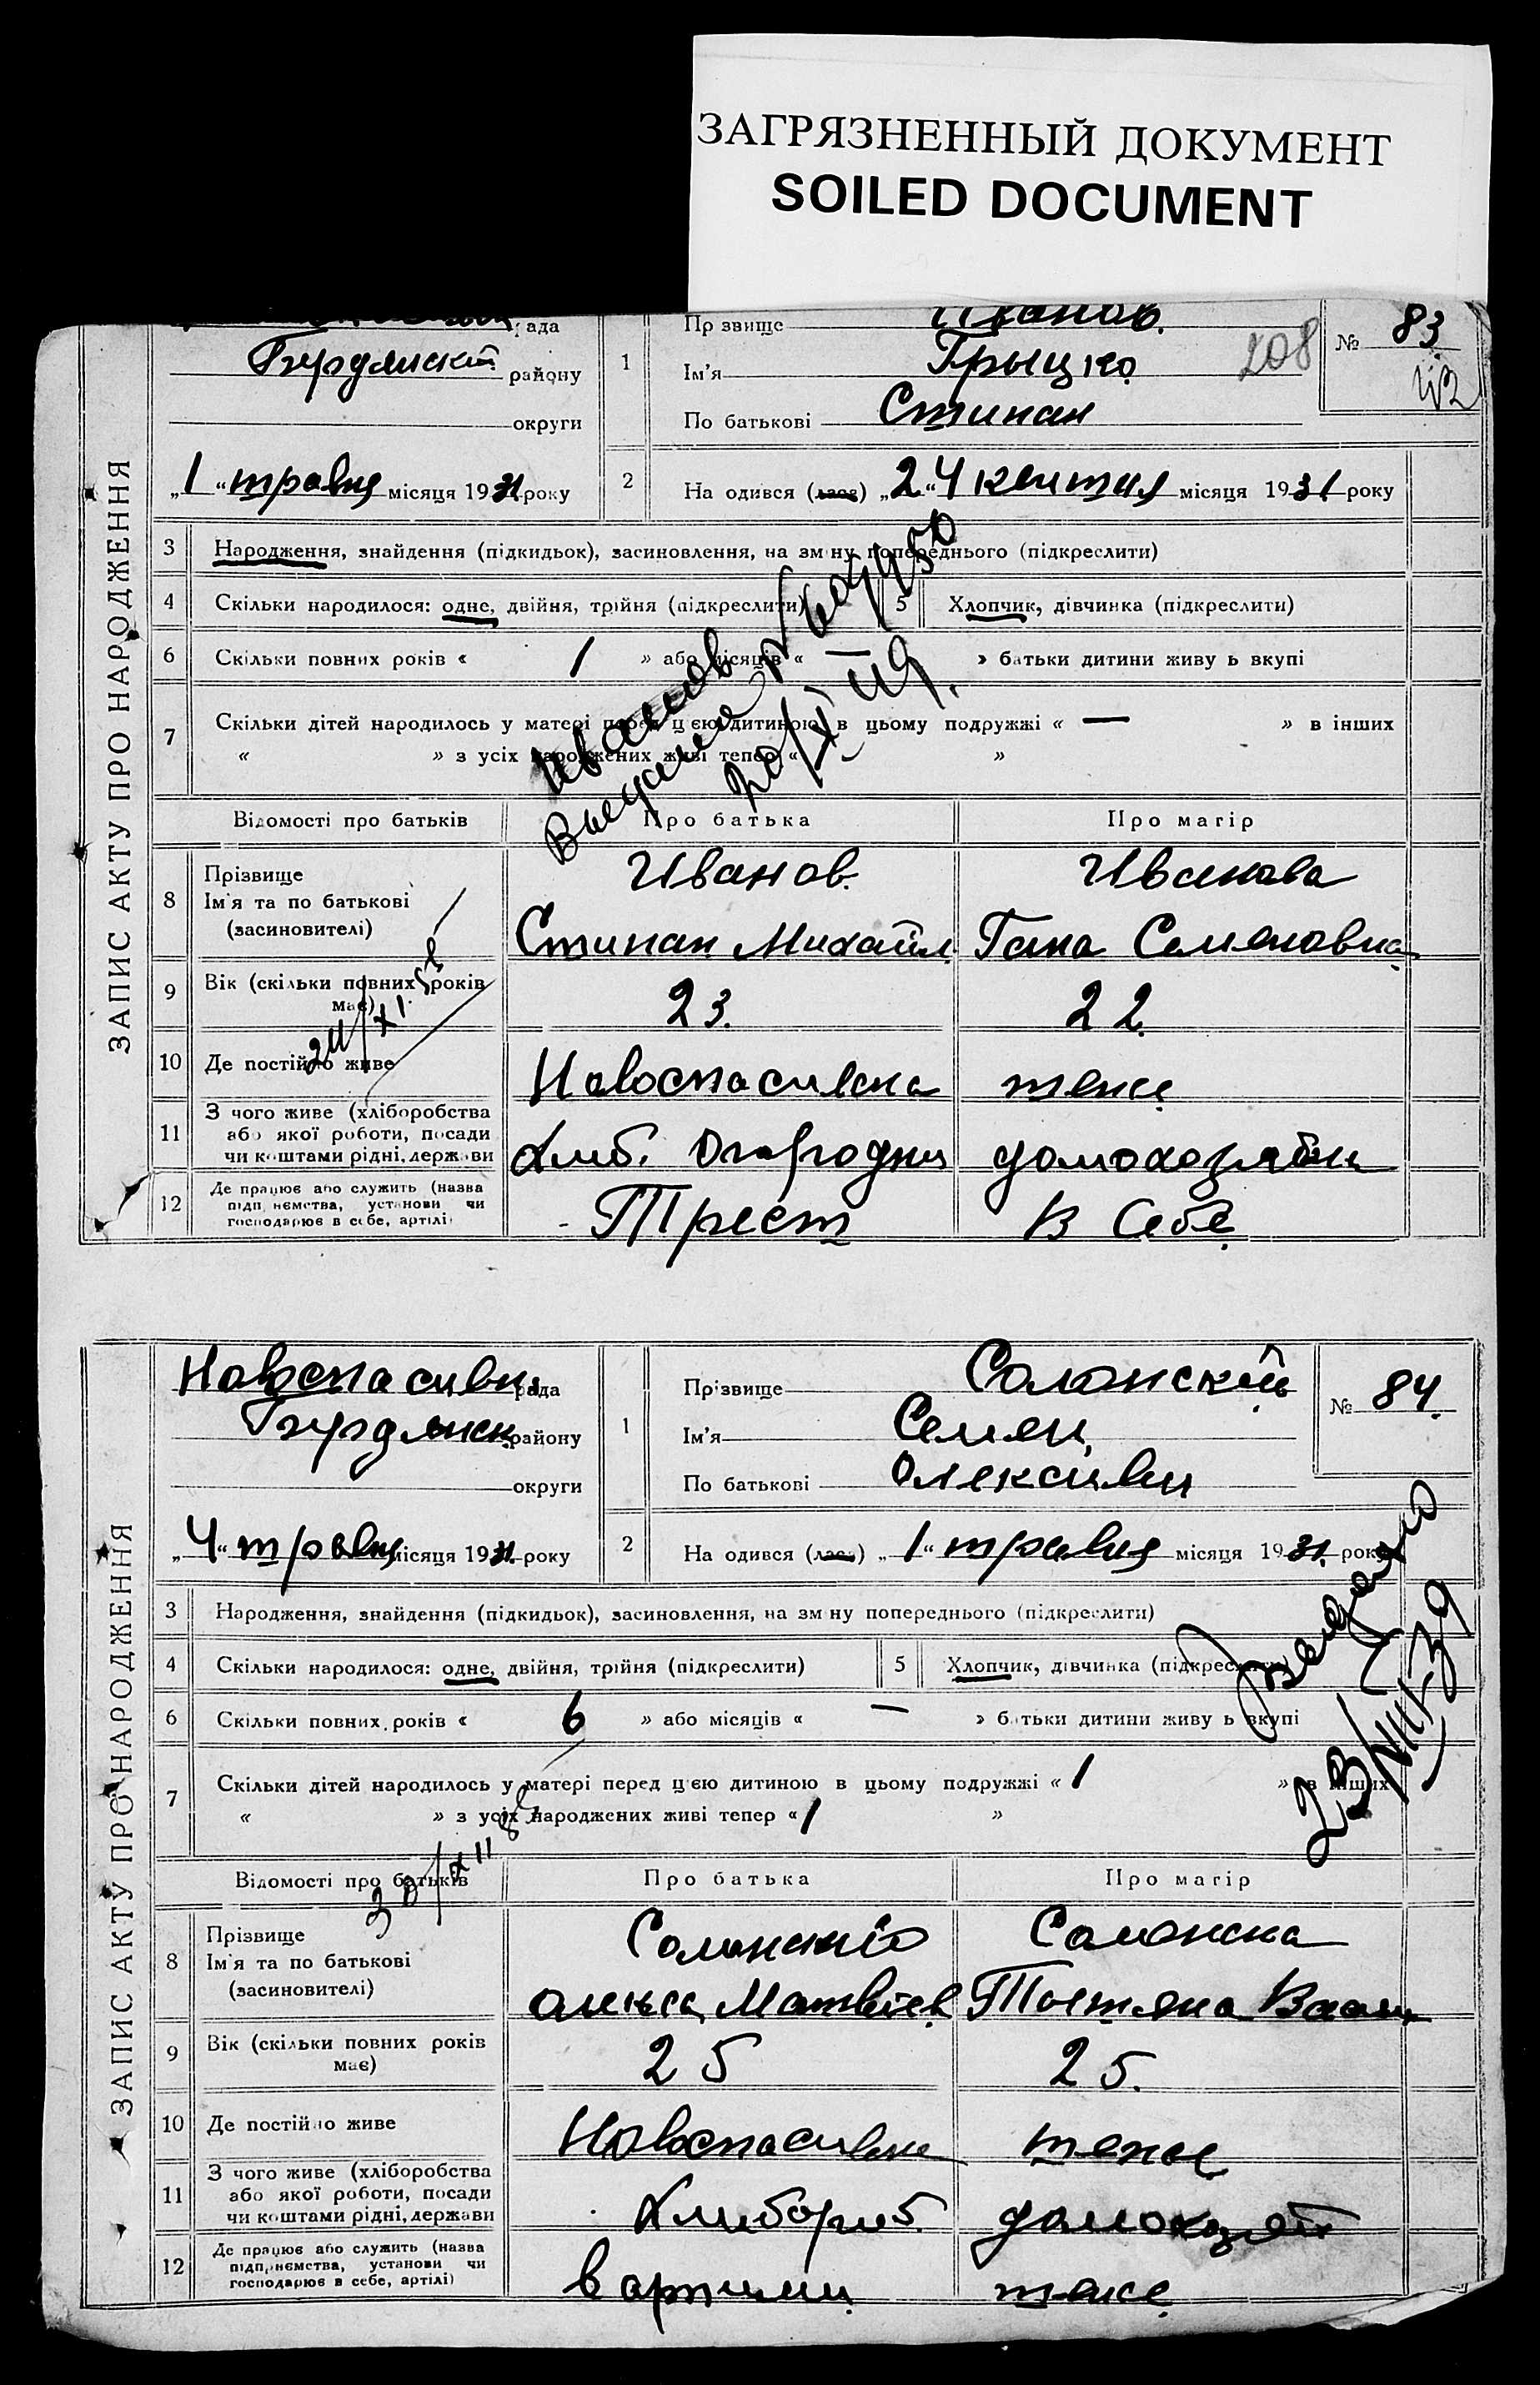 ЗАГРЯЗНЕННЫЙ ДОКУМЕНТ
SOILED DOCUMENT
ЗАПИС АКТУ ПРО НАРОДЖЕННЯ
рада
Бурдянский району
округи
„1“ травня місяця 1931 року
1
Прізвище Иванов.
Ім'я Грыцко
208
По батькові Стипан
№ 83
2
На одився „24“ квитня місяця 1931 року
3 Народження, знайдення (підкидьок), засиновлення, на зміну попереднього (підкреслити)
4 Скільки народилося: одне, двійня, трійня (підкреслити)
5 Хлопчик, дівчинка (підкреслити)
6 Скільки повних років « 1 » або місяців « — » батьки дитини живу ь вкупі
7 Скільки дітей народилось у матері перед цією дитиною в цьому подружжі « — » в інших
« » з усіх народжених живі тепер « »
Иванов
Выедание
20/XI
Відомості про батьків
Про батька
Про матір
8 Прізвище
Ім'я та по батькові
(засновителі)
Иванов.
Стипан Михайл.
Иванова
Гана Семеновна
9 Вік (скільки повних років має)
23.
22.
24/XI
10 Де постійно живе
Новоспасивка
теже
11 З чого живе (хліборобства
або якої роботи, посади
чи коштами рідні, держави
Хлиб. Огородни
домохозяйка
12 Де працює або служить (назва
підприємства, установи чи
господарює в себе, артілі)
Трест
В Себе
ЗАПИС АКТУ ПРО НАРОДЖЕННЯ
Новоспасивка рада
Бурдянск району
округи
„4“ травня місяця 1931. року
1
Прізвище Солонский
Ім'я Семен
По батькові Олексиви
№ 84.
2
На одився „1“ травня місяця 1931. року
3 Народження, знайдення (підкидьок), засиновлення, на зміну попереднього (підкреслити)
4 Скільки народилося: одне, двійня, трійня (підкреслити)
5 Хлопчик, дівчинка (підкреслити)
6 Скільки повних років « 6 » або місяців « — » батьки дитини живу ь вкупі
7 Скільки дітей народилось у матері перед цією дитиною в цьому подружжі « 1 » в інших
« » з усіх народжених живі тепер « 1 »
23/VIII-39
Відомості про батьків
Про батька
Про матір
8 Прізвище
Ім'я та по батькові
(засиновителі)
Солонский
Олекса Матвіев
Солонска
Тотяна
9 Вік (скільки повних років має)
25
25.
10 Де постійно живе
Новоспасивка
теже
11 З чого живе (хліборобства
або якої роботи, посади
чи коштами рідні, держави
Хлибороб.
домохозяй
12 Де працює або служить (назва
підприємства, установи чи
господарює в себе, артілі)
в артили
теже